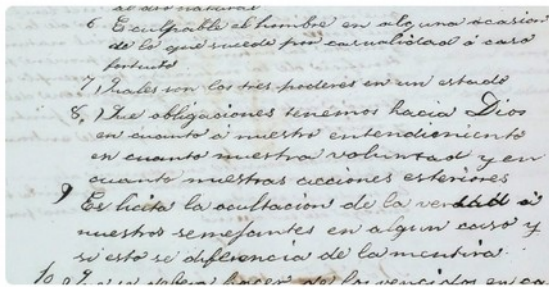 al dro natural
6 Es culpable el hombre en alguna ocasion
de lo que sucede por casualidad ó caso
fortuito
7) Quales son los tres poderes en un estado
8,) Que obligaciones tenemos hacia Dios
en cuanto a nuestro entendimiento
en cuanto nuestra voluntad y en
cuanto nuestras acciones esteriores
9 Es licita la ocultacion de la verdad á
nuestros semejantes en algun caso y
si esto se diferencia de la mentira
10 hacer de los vencidos en ca